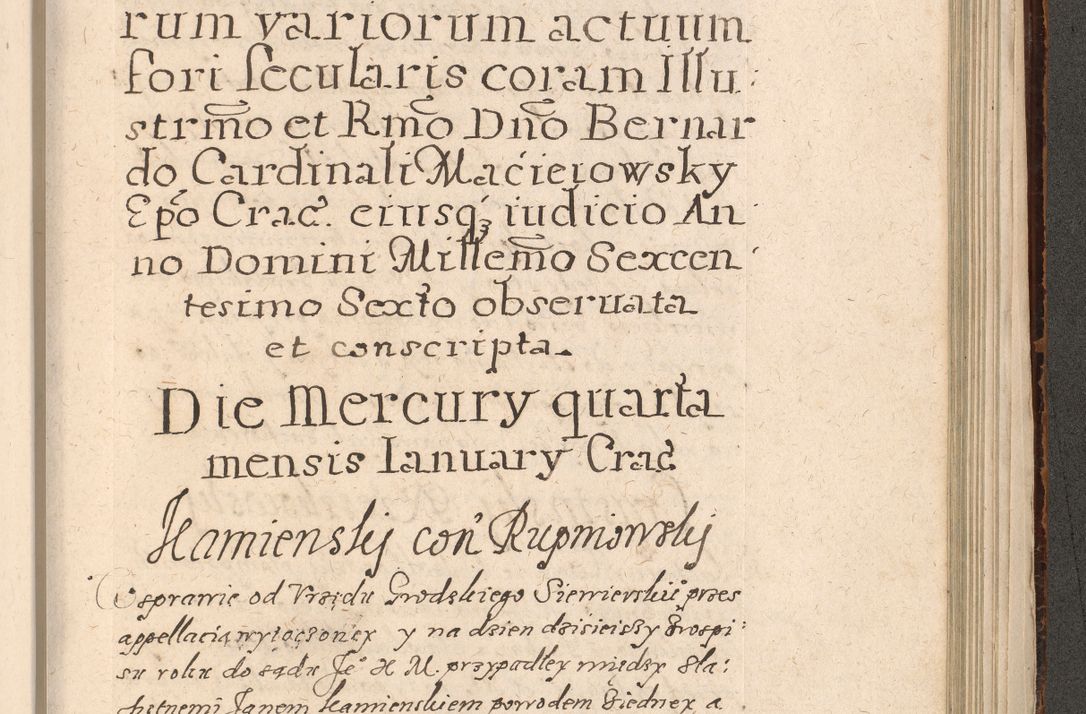 rum variorum actuum
fori secularis coram Illu:
strm̃o et Rm̃o Dño Bernar
do Cardinali Macieiowsky
Ep̃o Crac̃. eiusq́ꝫ iudicio An
no Domini Millem̃o Sexcen:
tesimo Sexto obseruata
et conscripta.
Die Mercury quarta
mensis Ianuary Crac̃
Kamienskij con' Rupniowskij
W sprawie od Vrzędu Grodskiego Siewierskie przes
appellacią wytoczoney y na dzien dzisieiszy z rospi:
su roku do sądu Je° X M. przypadłey między Sla:
chetnemi Janem Kamienskiem powodem z iedney a